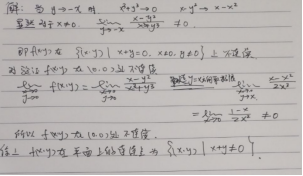 解: 当 y→-x 时, x³+y³→0 x-y²→x-x²
显然对于 x≠0. lim_{y→-x} (x-y²)/(x³+y³) ≠0.
即 f(x,y) 在 {(x,y) | x+y=0, x≠0, y≠0} 上不连续
f(x,y) 在 (0,0) 处不连续
lim_{x→0 y→0} f(x,y) = lim_{x→0 y→0} (x-y²)/(x³+y³) lim_{x→0 y→x} (x-x²)/(2x³)
= lim_{x→0} (1-x)/(2x²) ≠0
所以 f(x,y) 在 (0,0) 处不连续.
综上 f(x,y) 在平面上的连续 为 {(x,y) | x+y≠0}.